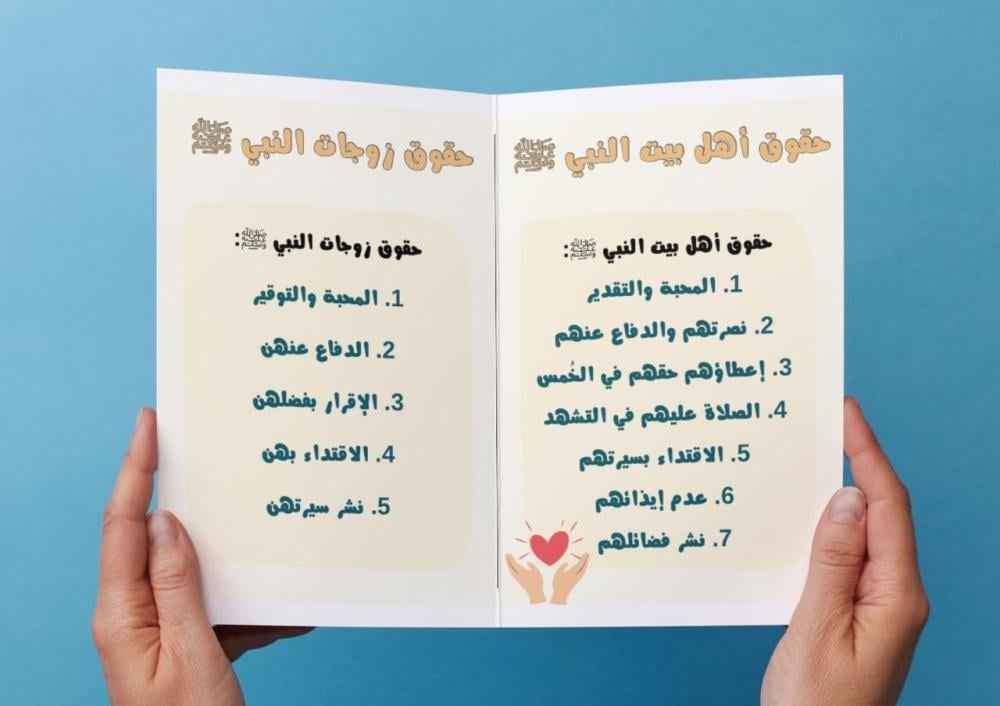 حقوق أهل بيت النبي ﷺ
حقوق أهل بيت النبي ﷺ:
1. المحبة والتقدير
2. نصرتهم والدفاع عنهم
3. إعطاؤهم حقهم في الخُمس
4. الصلاة عليهم في التشهد
5. الاقتداء بسيرتهم
6. عدم إيذائهم
7. نشر فضائلهم
حقوق زوجات النبي ﷺ
حقوق زوجات النبي ﷺ:
1. المحبة والتوقير
2. الدفاع عنهن
3. الإقرار بفضلهن
4. الاقتداء بهن
5. نشر سيرتهن